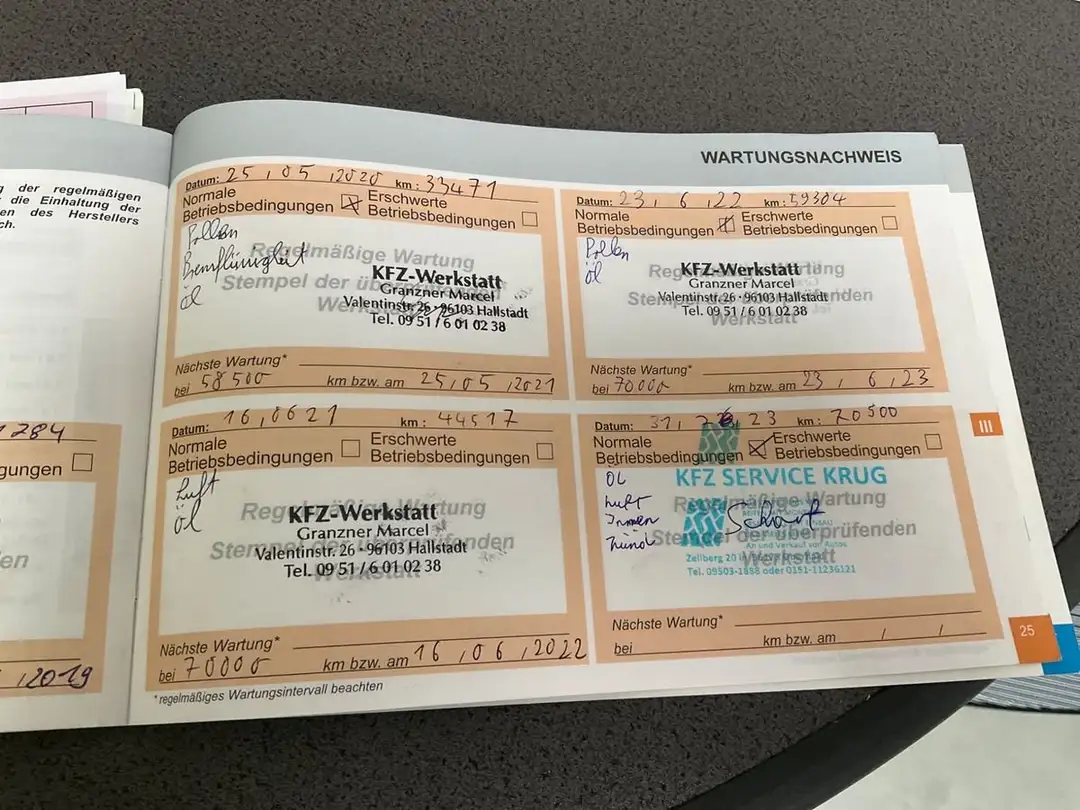 g der regelmäßigen
die Einhaltung der
en des Herstellers
ch.
1284
gungen
en
, 2019
WARTUNGSNACHWEIS
Datum: 25 , 05 , 2020 km : 33471
Normale Betriebsbedingungen
Erschwerte Betriebsbedingungen
Pollen
Bremsflüssigkeit
öl
Regelmäßige Wartung
Stempel der überprüfenden
Werkstatt
KFZ-Werkstatt
Granzner Marcel
Valentinstr. 26 · 96103 Hallstadt
Tel. 09 51 / 6 01 02 38
Nächste Wartung*
bei 58500 km bzw. am 25 , 05 , 2021
Datum: 16 , 06 21 km : 44517
Normale Betriebsbedingungen
Erschwerte Betriebsbedingungen
Luft
öl
Regelmäßige Wartung
Stempel der überprüfenden
Werkstatt
KFZ-Werkstatt
Granzner Marcel
Valentinstr. 26 · 96103 Hallstadt
Tel. 09 51 / 6 01 02 38
Nächste Wartung*
bei 70000 km bzw. am 16 , 06 , 2022
*regelmäßiges Wartungsintervall beachten
Datum: 23 , 6 , 22 km : 59304
Normale Betriebsbedingungen
Erschwerte Betriebsbedingungen
Pollen
öl
Regelmäßige Wartung
Stempel der überprüfenden
Werkstatt
KFZ-Werkstatt
Granzner Marcel
Valentinstr. 26 · 96103 Hallstadt
Tel. 09 51 / 6 01 02 38
Nächste Wartung*
bei 70000 km bzw. am 23 , 6 , 23
Datum: 31, , 23 km : 70500
Normale Betriebsbedingungen
Erschwerte Betriebsbedingungen
ÖL
Luft
Innen
Zünd
KFZ SERVICE KRUG
Regelmäßige Wartung
Stempel der überprüfenden
Werkstatt
An und Verkauf von Autos
Zellberg 20
Tel. 09503-1888 oder 0151-11236121
Nächste Wartung*
bei km bzw. am / /
III
25